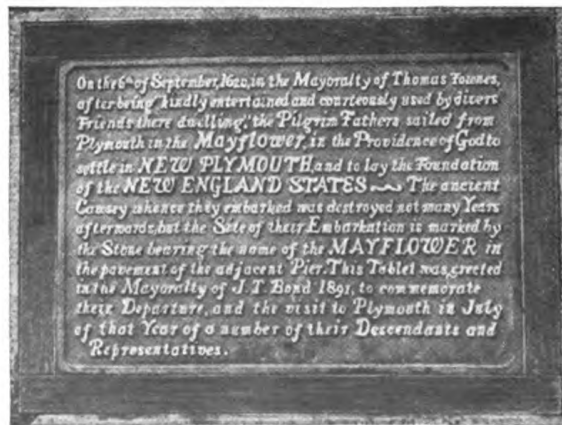 On the 6th of September, 1620, in the Mayoralty of Thomas Fownes,
after being "kindly entertained and courteously used by divers
Friends there dwelling," the Pilgrim Fathers sailed from
Plymouth in the Mayflower, in the Providence of God to
settle in NEW PLYMOUTH, and to lay the Foundation
of the NEW ENGLAND STATES — The ancient
Cawsey whence they embarked was destroyed not many Years
afterwards, but the Site of their Embarkation is marked by
the Stone bearing the name of the MAYFLOWER in
the pavement of the adjacent Pier. This Tablet was erected
in the Mayoralty of J. T. Bond 1891, to commemorate
their Departure, and the visit to Plymouth in July
of that Year of a number of their Descendants and
Representatives.